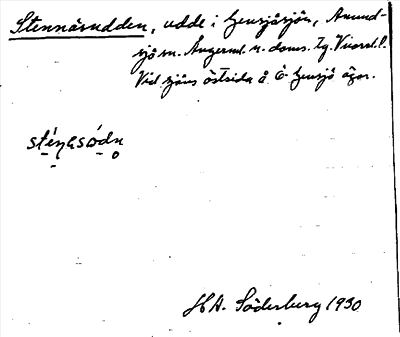 Stennäsudden, udde i Gensjösjön, Anund-
sjö sn. Ångerml. n. doms. tg. V:norrl. l.
Vid sjöns östsida å Ö Gensjö ägor.
sténasòdn
H A. Söderberg 1930